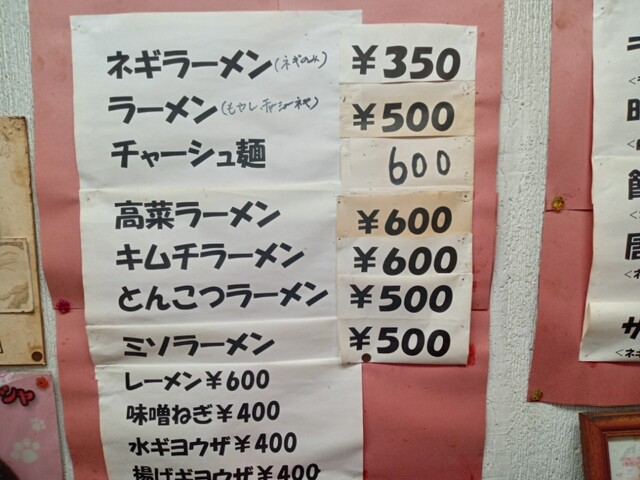 ネギラーメン(ネギのみ) ¥350
ラーメン(もやし、チャーシュー、ネギ) ¥500
チャーシュー麺 600
高菜ラーメン ¥600
キムチラーメン ¥600
とんこつラーメン ¥500
ミソラーメン ¥500
レーメン¥600
味噌ねぎ¥400
水ギョウザ¥400
揚げギョウザ¥400